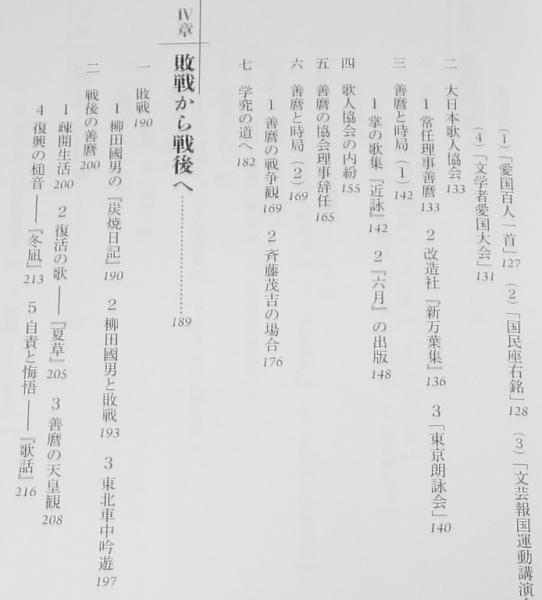 (1)「愛国百人一首」127 (2)「国民座右銘」128 (3)「文芸報国運動講演
(4)「文学者愛国大会」131
二 大日本歌人協会 133
1 常任理事善麿 133 2 改造社『新万葉集』136 3「東京朗詠会」140
三 善麿と時局(1)142
1 掌の歌集『近詠』142 2『六月』の出版 148
四 歌人協会の内紛 155
五 善麿の協会理事辞任 165
六 善麿と時局(2)169
1 善麿の戦争観 169 2 斉藤茂吉の場合 176
七 学究の道へ 182
Ⅳ章 敗戦から戦後へ……………………189
一 敗戦 190
1 柳田國男の『炭焼日記』190 2 柳田國男と敗戦 193 3 東北車中吟遊 197
二 戦後の善麿 200
1 疎開生活 200 2 復活の歌——『夏草』205 3 善麿の天皇観 208
4 復興の槌音——『冬凪』213 5 自責と悔悟——『歌話』216